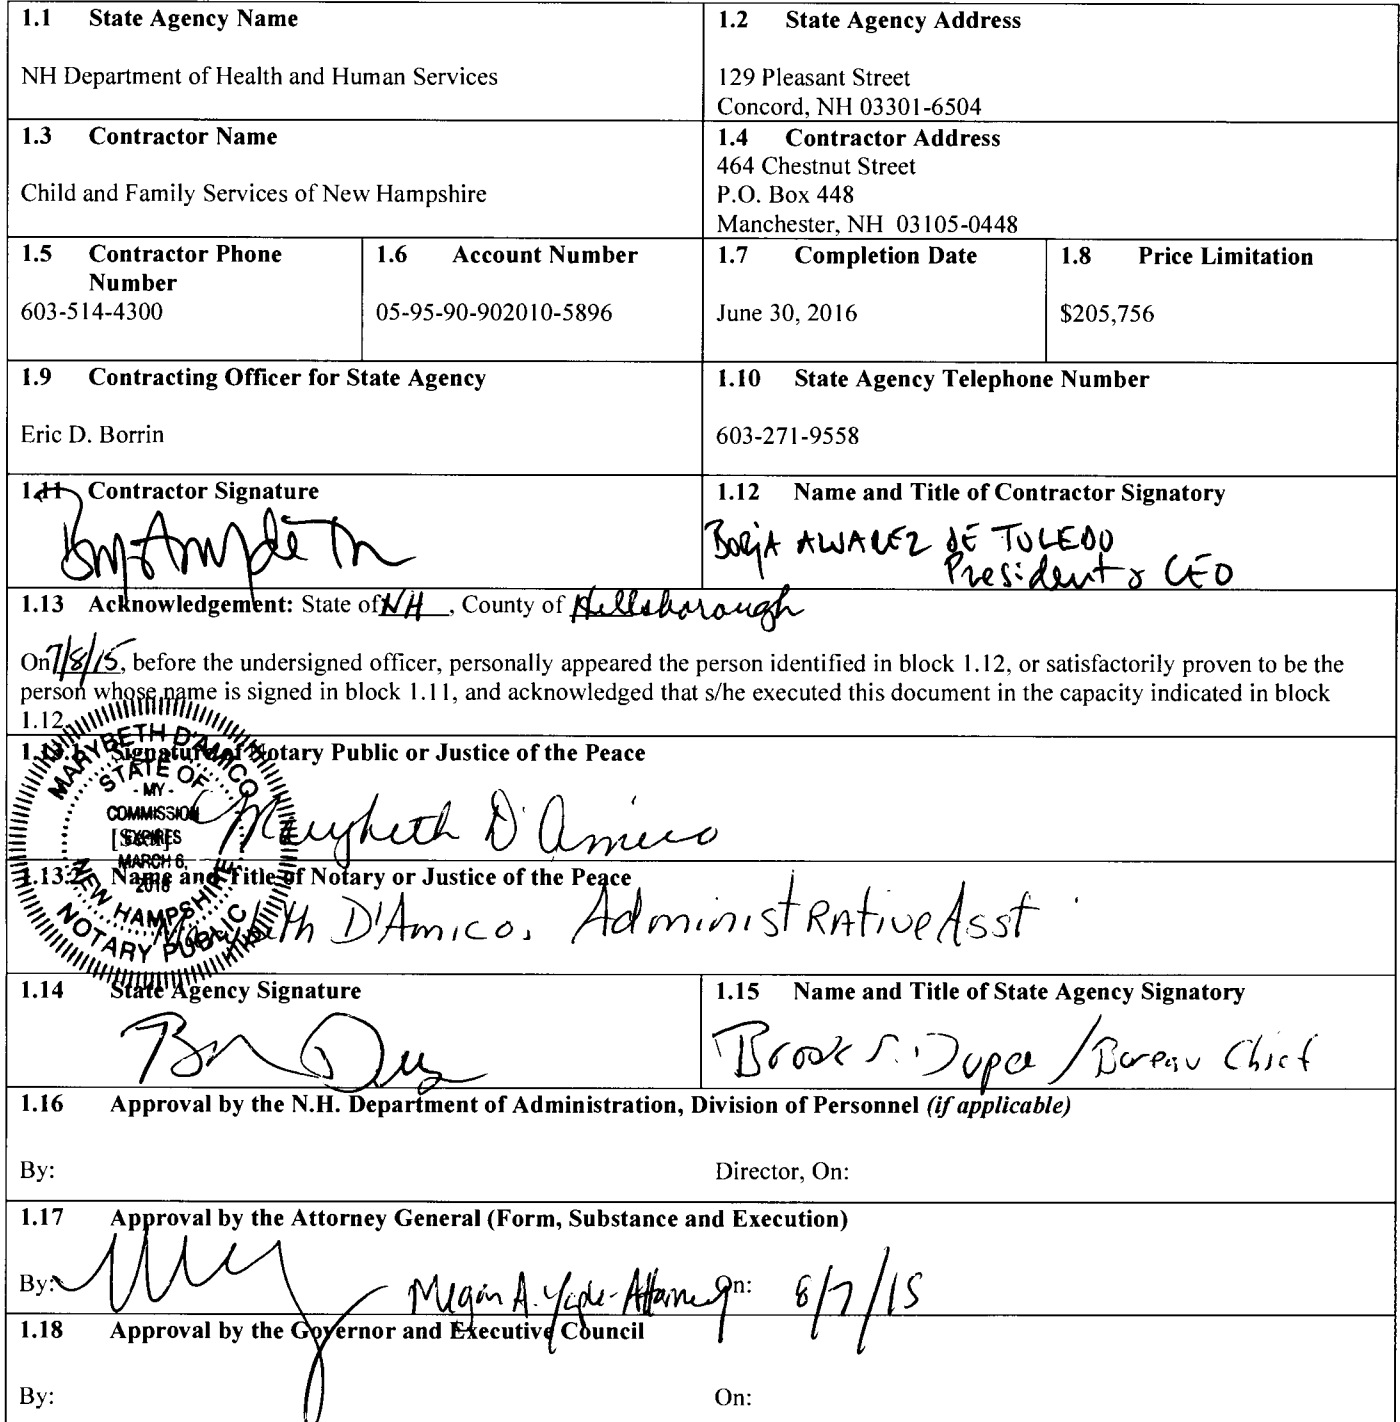 1.1 State Agency Name
NH Department of Health and Human Services
1.2 State Agency Address
129 Pleasant Street
Concord, NH 03301-6504
1.3 Contractor Name
Child and Family Services of New Hampshire
1.4 Contractor Address
464 Chestnut Street
P.O. Box 448
Manchester, NH 03105-0448
1.5 Contractor Phone
Number
603-514-4300
1.6 Account Number
05-95-90-902010-5896
1.7 Completion Date
June 30, 2016
1.8 Price Limitation
$205,756
1.9 Contracting Officer for State Agency
Eric D. Borrin
1.10 State Agency Telephone Number
603-271-9558
1.11 Contractor Signature
1.12 Name and Title of Contractor Signatory
Borja ALVAREZ DE TOLEDO
President & CEO
1.13 Acknowledgement: State of NH, County of Hillsborough
On 7/8/15, before the undersigned officer, personally appeared the person identified in block 1.12, or satisfactorily proven to be the
person whose name is signed in block 1.11, and acknowledged that s/he executed this document in the capacity indicated in block
1.12.
1.13.1 Signature of Notary Public or Justice of the Peace
MARYBETH D'AMICO
STATE OF
- MY -
COMMISSION
EXPIRES
[Seal]
MARCH 6,
NEW HAMPSHIRE
NOTARY PUBLIC
Marybeth D'Amico
1.13.2 Name and Title of Notary or Justice of the Peace
Marybeth D'Amico, Administrative Asst
1.14 State Agency Signature
1.15 Name and Title of State Agency Signatory
Brook S. Dupee / Bureau Chief
1.16 Approval by the N.H. Department of Administration, Division of Personnel (if applicable)
By:
Director, On:
1.17 Approval by the Attorney General (Form, Substance and Execution)
By: Megan A. Yaple-Attorney On: 8/7/15
1.18 Approval by the Governor and Executive Council
By:
On: